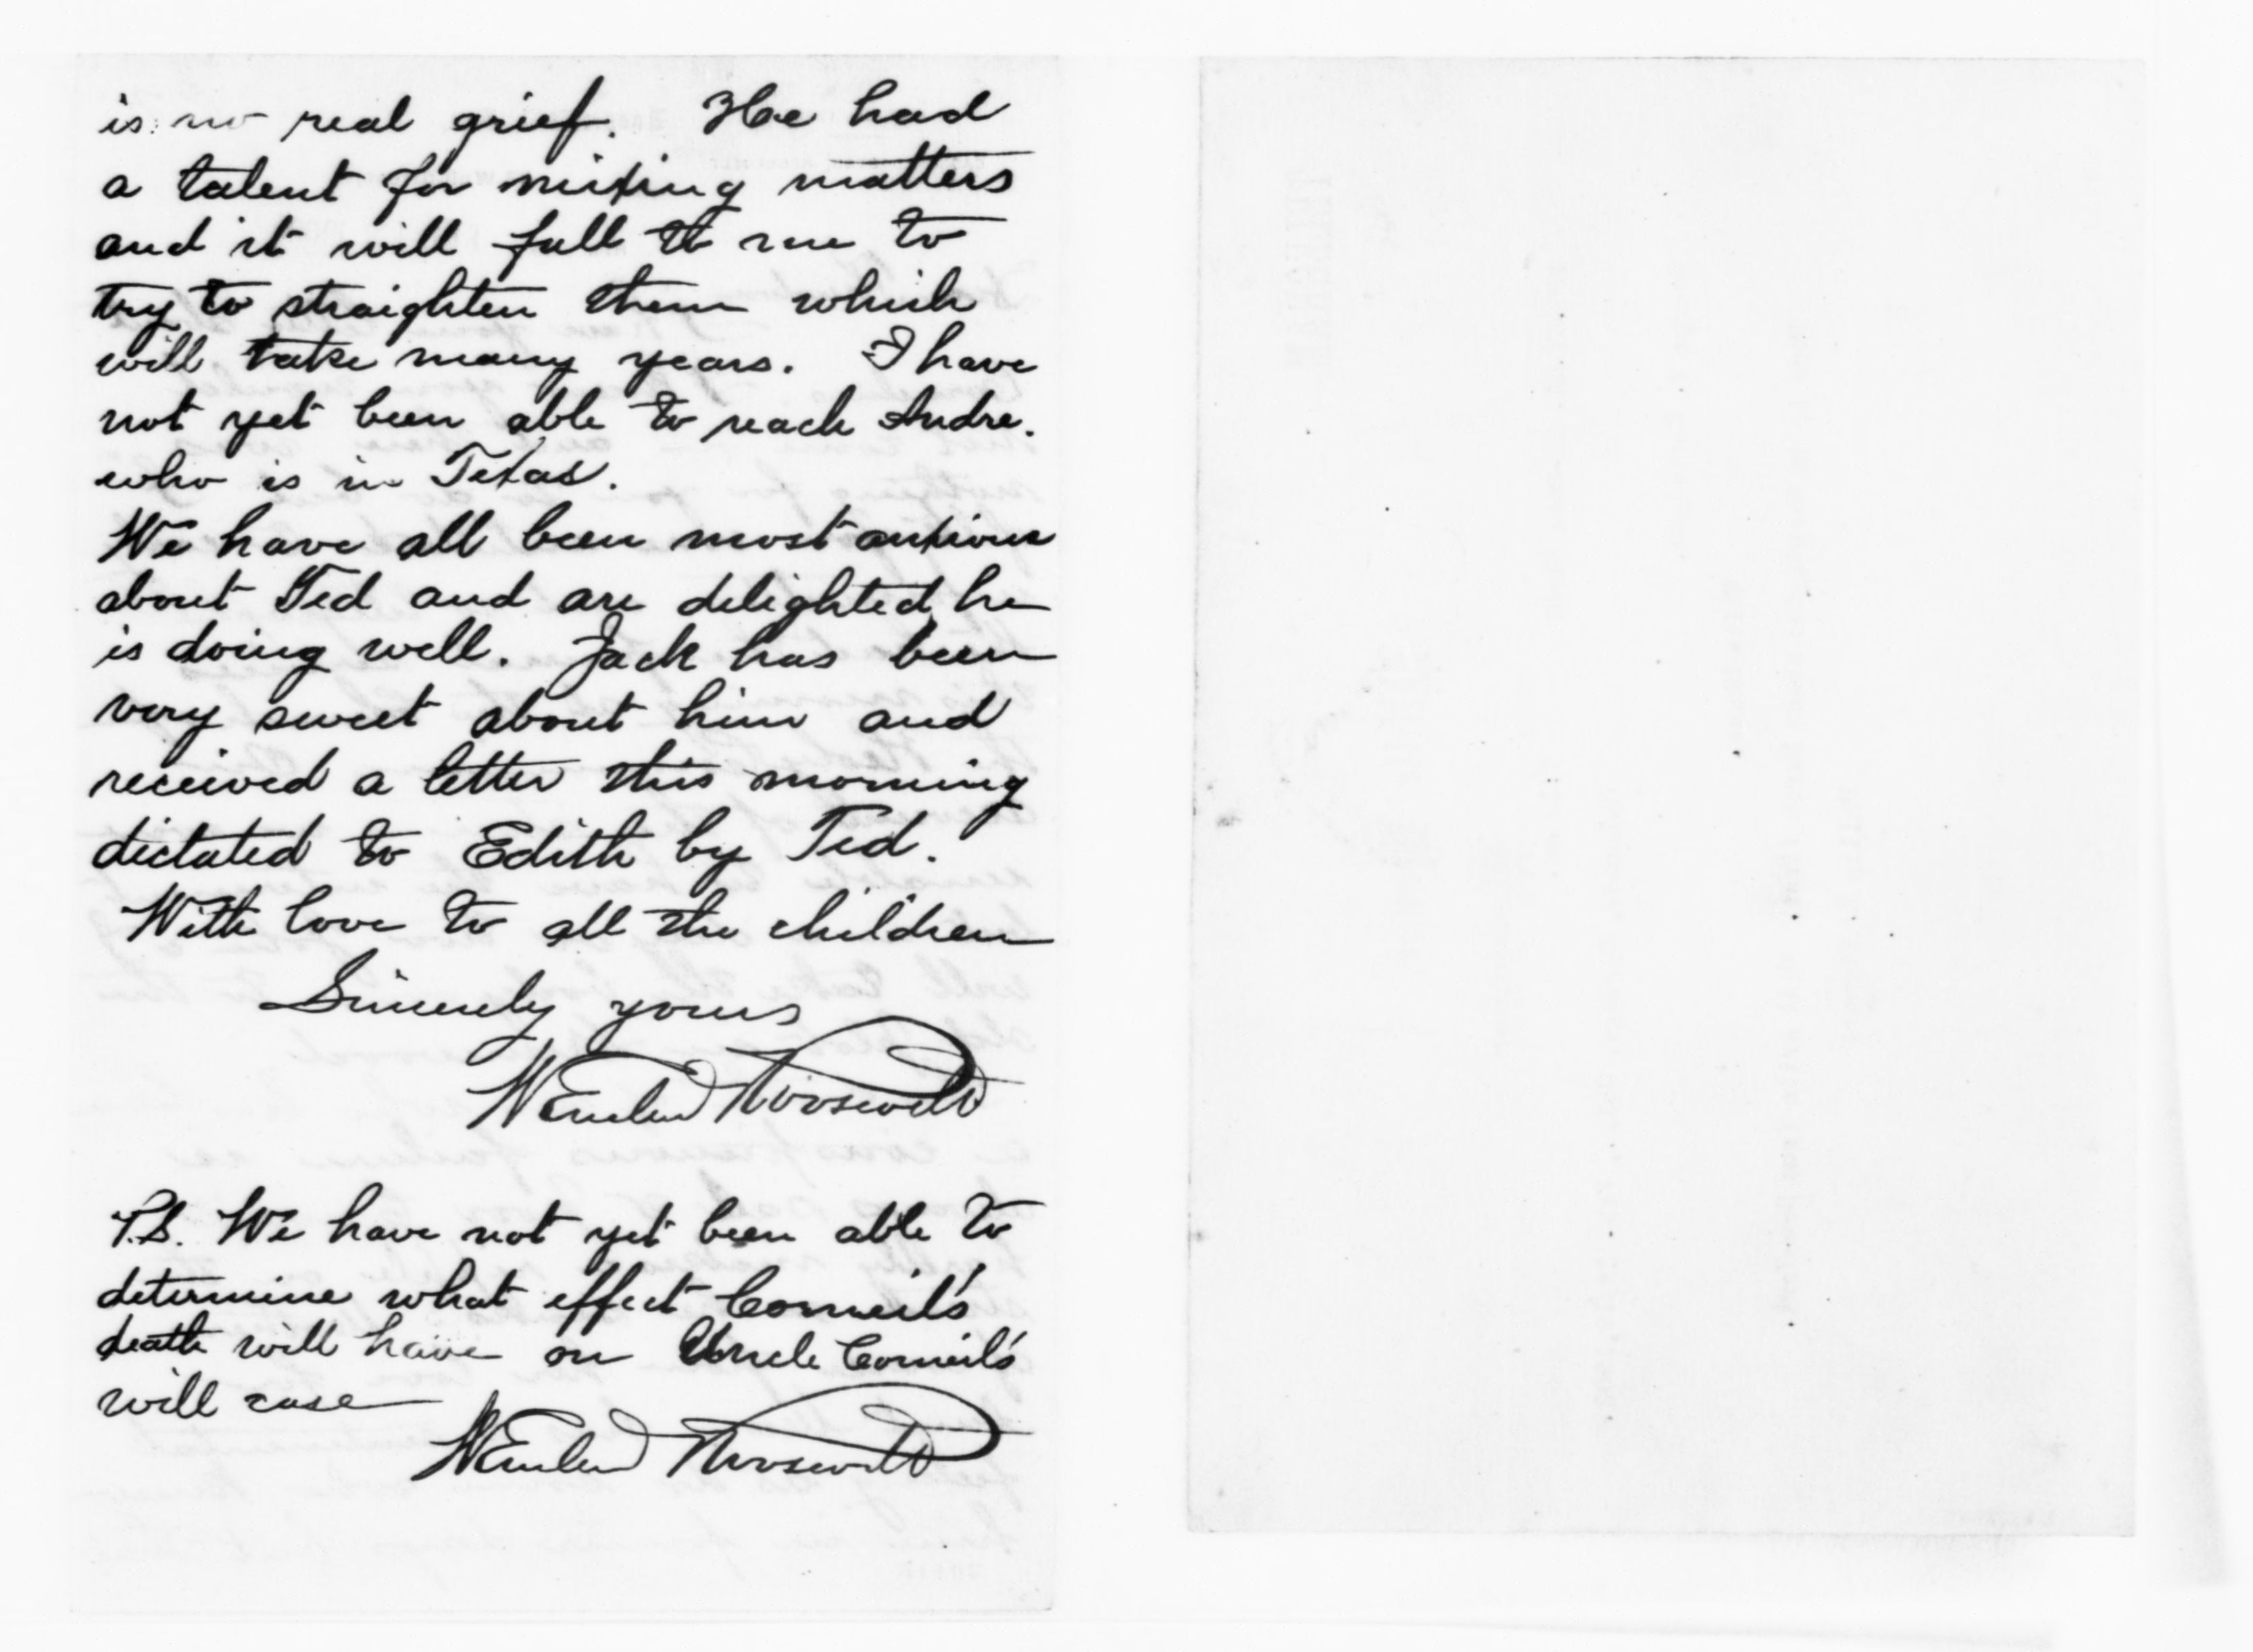 is no real grief. He had
a talent for mixing matters
and it will fall to me to
try to straighten them which
will take many years. I have
not yet been able to reach Andre.
who is in Texas.
We have all been most anxious
about Ted and are delighted he
is doing well. Jack has been
very sweet about him and
received a letter this morning
dictated to Edith by Ted.
With love to all the children
Sincerely yours
W Emlen Roosevelt
P.S. We have not yet been able to
determine what effect Corneil's
death will have on Uncle Corneil's
will case
W Emlen Roosevelt